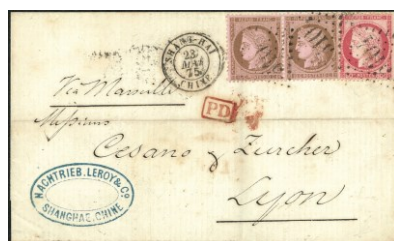 SHANG-HAI
23
MAI
75
CHINE
Via Marseille
PD
Messieurs
Cesano & Zurcher
Lyon
NACHTRIEB. LEROY & Cº
SHANGHAE. CHINE